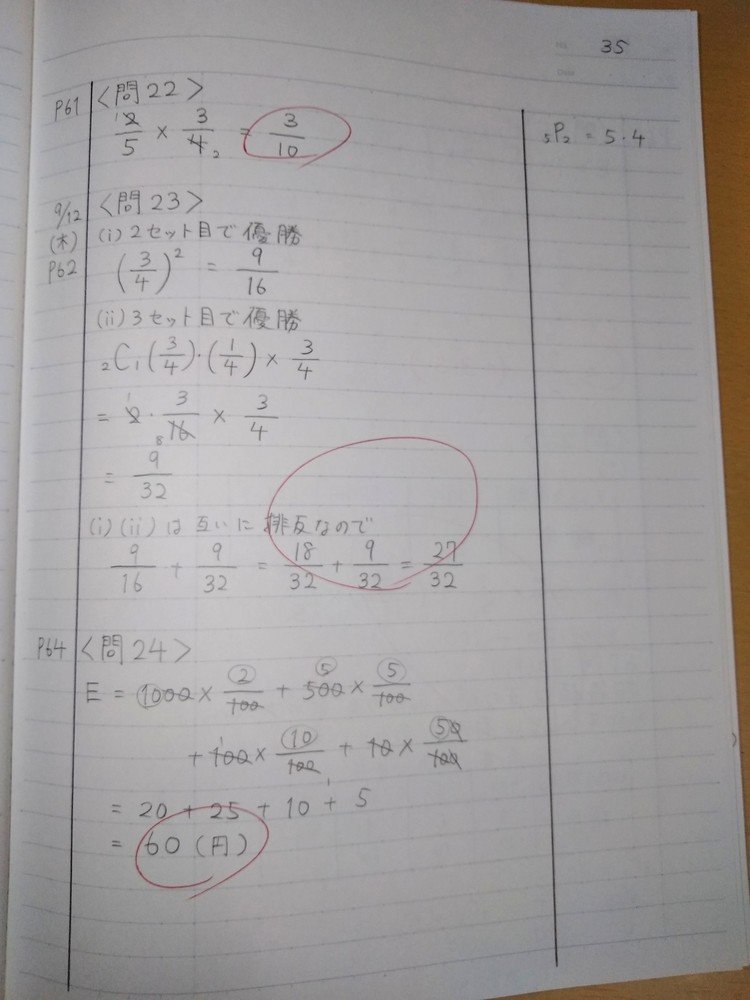 35
P61 <問22>
2/5 × 3/4 2 = 3/10
₅P₂ = 5・4
9/12 <問23>
(木) (i) 2セット目で優勝
P62 (3/4)² = 9/16
(ii) 3セット目で優勝
₂C₁(3/4)・(1/4) × 3/4
= 2・3/16 × 3/4
= 9/32
(i)(ii)は互いに排反なので
9/16 + 9/32 = 18/32 + 9/32 = 27/32
P64 <問24>
E = 1000 × 2/100 + 500 × 5/100
+ 100 × 10/100 + 10 × 50/100
= 20 + 25 + 10 + 5
= 60 (円)